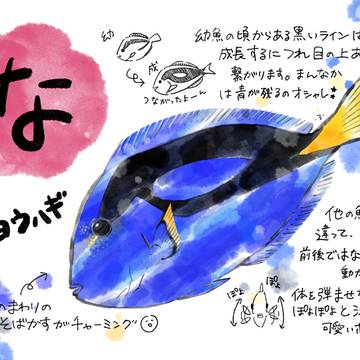 な
ョウハギ
幼
成
つながったよーん
幼魚の頃からある黒いラインは
成長するにつれ目の上あ
繋がります。まんなか
は青が残るのオシャレ
他の魚
違って、
前後ではな
動か
体を弾ませ
ぽよぽよとジ
可愛い
ぽよ
ぽよ
のまわりの
そばかすがチャーミング